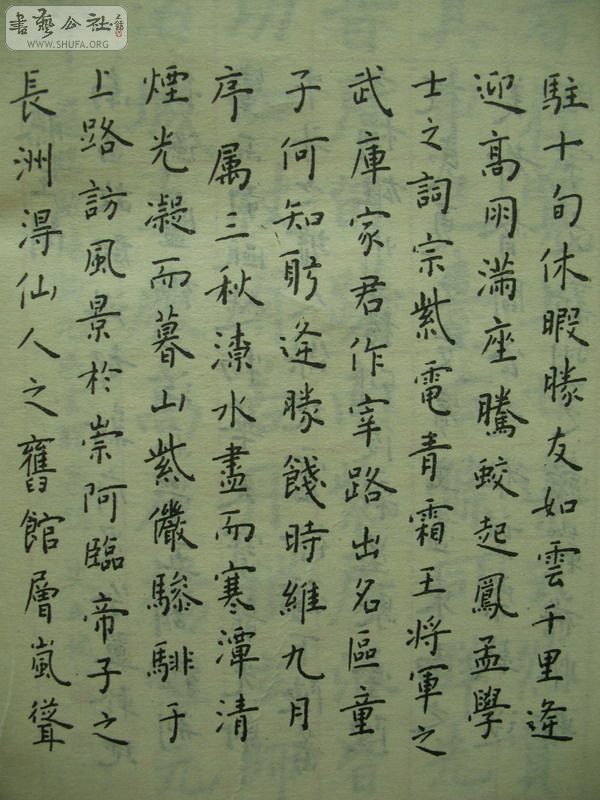 書藝公社
WWW.SHUFA.ORG
駐十旬休暇勝友如雲千里逢
迎高朋滿座騰蛟起鳳孟學
士之詞宗紫電青霜王將軍之
武庫家君作宰路出名區童
子何知躬逢勝餞時維九月
序属三秋潦水盡而寒潭清
煙光凝而暮山紫儼驂騑于
上路訪風景於崇阿臨帝子之
長洲得仙人之舊館層嵐聳